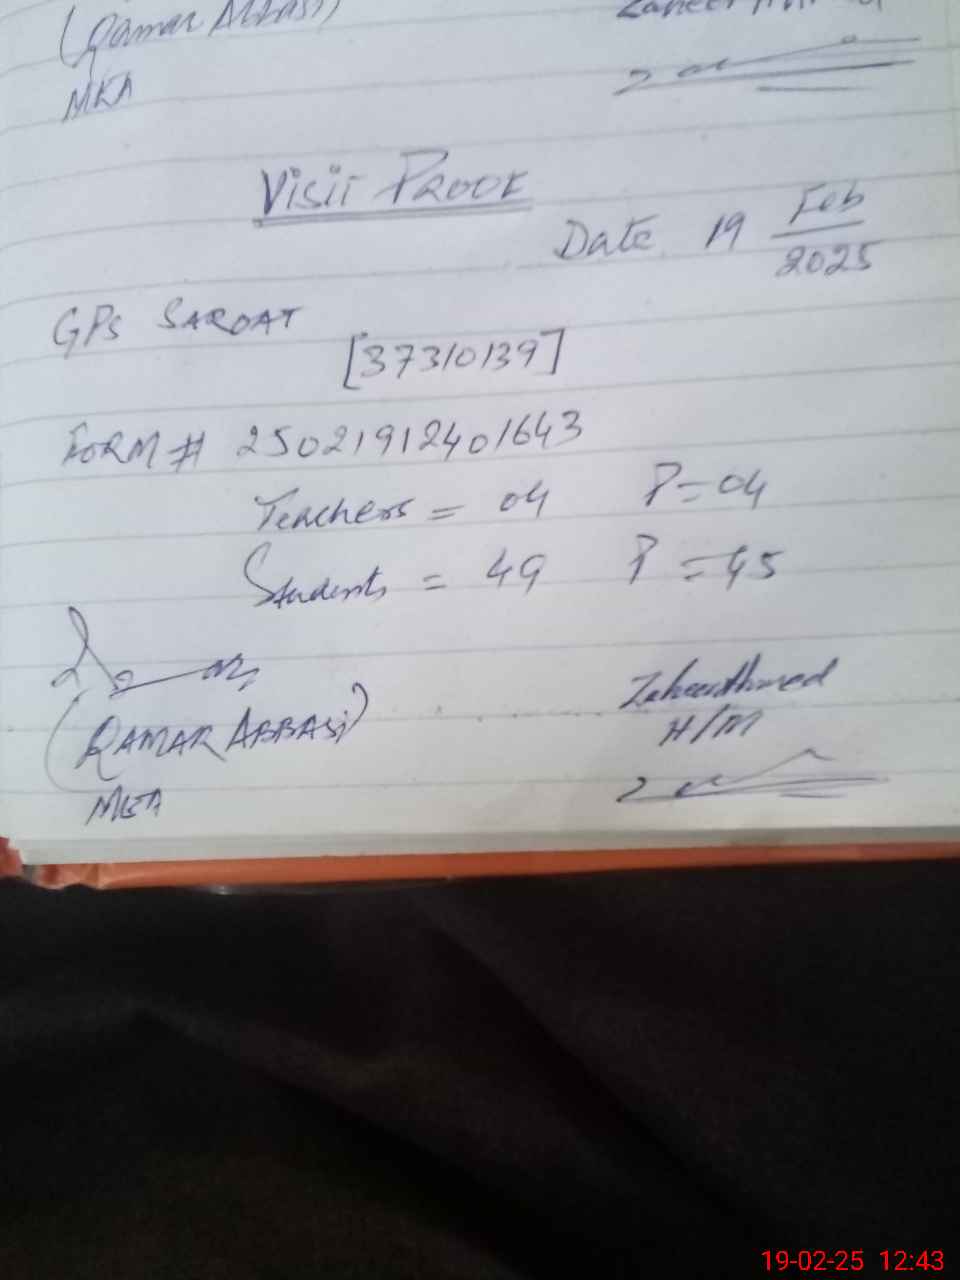 (Qamar Abbasi)
MKA
Visit Proof
Date 19 Feb
2025
GPS SAROAT
[37310139]
FORM # 25021912401643
Teachers = 04 P=04
Students = 49 P=45
(QAMAR ABBASi)
Zaheer Ahmed
H/M
MEA
19-02-25 12:43